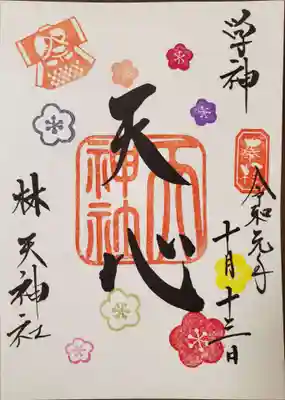 学神
奉拝
令和元年
十月十三日
天心
天神社
祭
林天神社